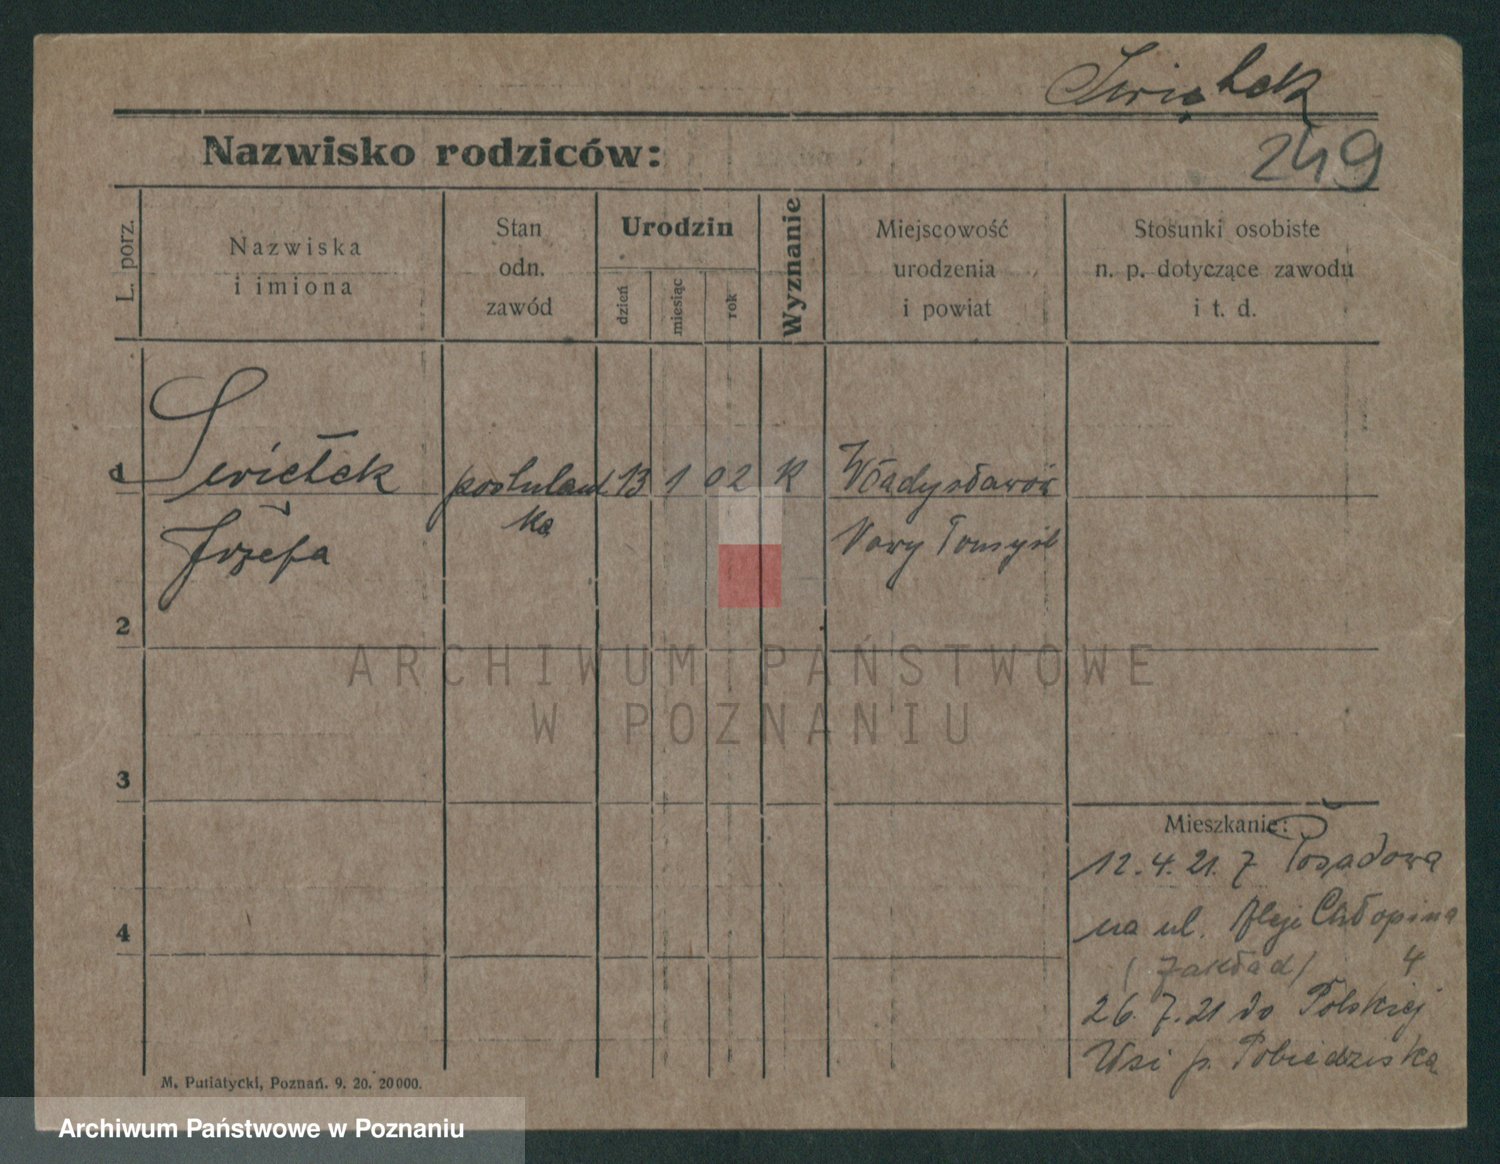 Świątek
249
Nazwisko rodziców:
L. porz.
Nazwiska
i imiona
Stan
odn.
zawód
Urodzin
dzień
miesiąc
rok
Wyznanie
Miejscowość
urodzenia
i powiat
Stosunki osobiste
n. p. dotyczące zawodu
i t. d.
1
Swietek
Józefa
postulant
ka
13
1
02
K
Władysławów
Nowy Tomyśl
2
3
4
Mieszkanie:
12.4.21. z Posadowa
na ul. Aleje Chłopina
(zakład) 4
26.7.21 do Polskiej
Wsi p. Pobiedziska
M. Putiatycki, Poznań. 9. 20. 20000.
ARCHIWUM PAŃSTWOWE
W POZNANIU
Archiwum Państwowe w Poznaniu